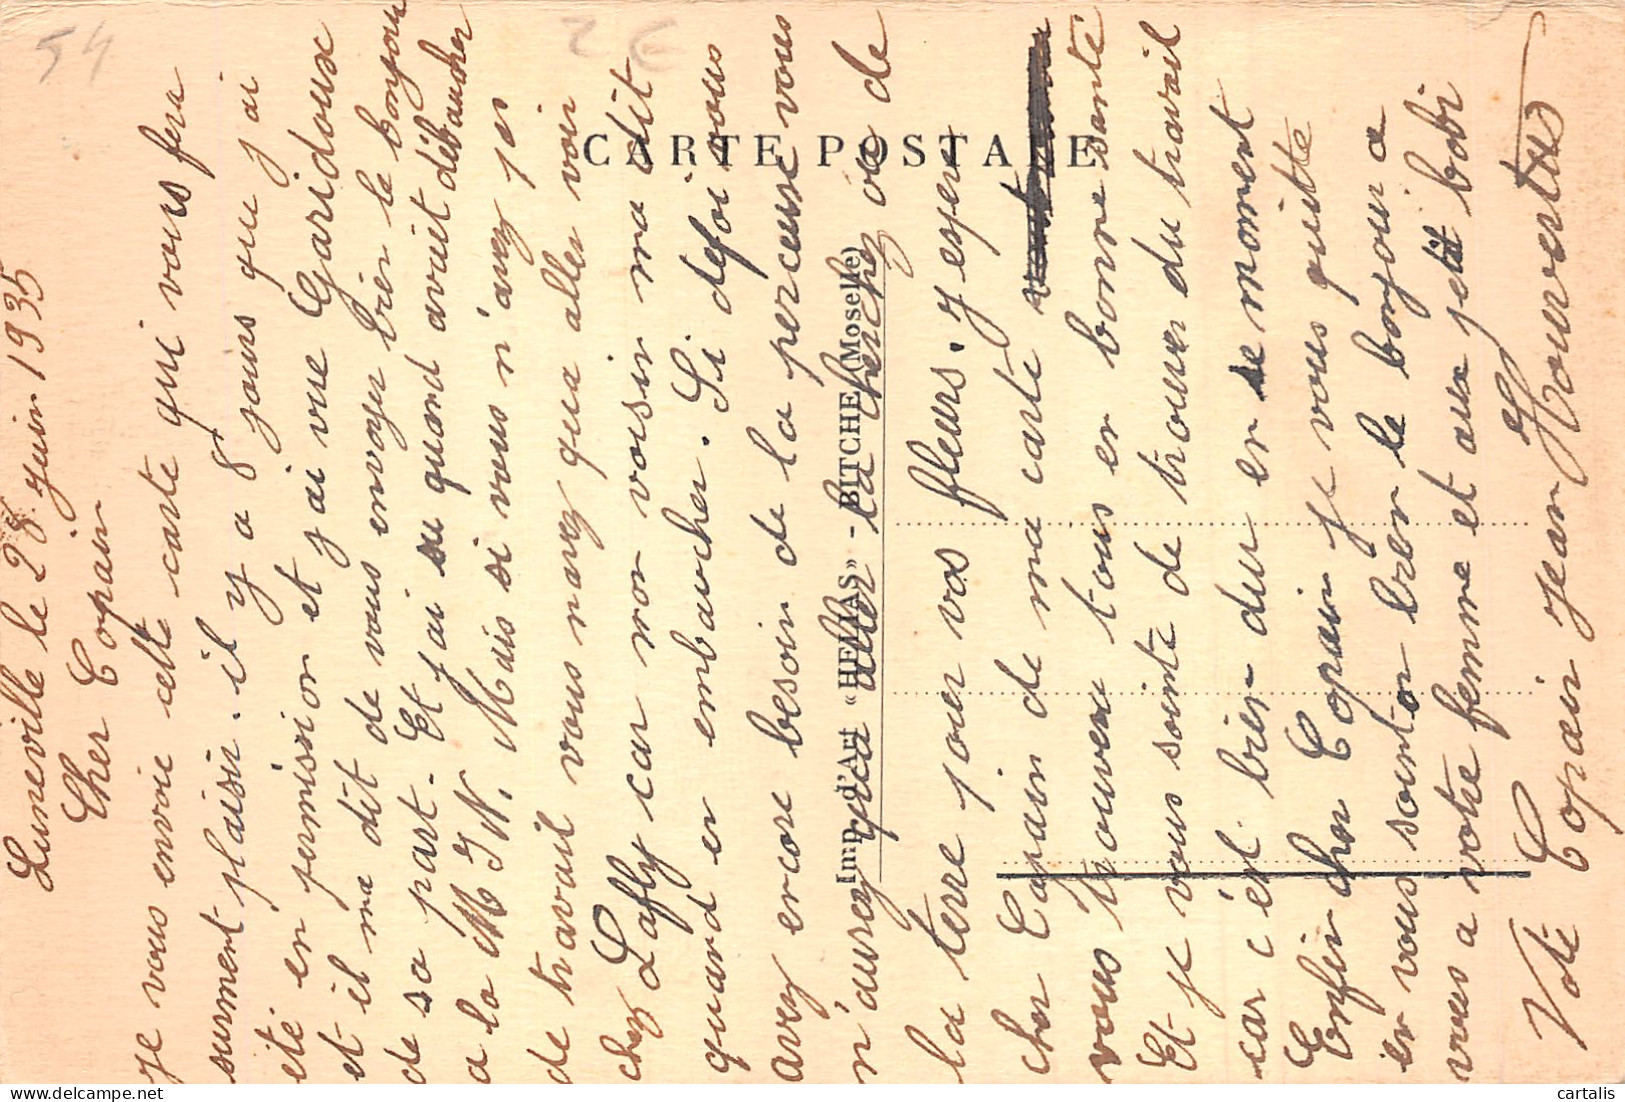 54
2€
CARTE POSTALE
Imp. d'Art «HELIAS» - BITCHE (Moselle)
Luneville le 28 juin 1935
Cher Copain
je vous envoie cette carte qui vous fera
surment plaisir. il y a 8 jours que j'ai
été en permission et j'ai vue Garidoux
et il ma dit de vous envoyer bien le bonjour
de sa part. Et j'ai su quand avait débaucher
a la M J N. Mais si vous n'avez pas
de travail vous navez qua aller voir
chez Laffly car mon voisin ma dit
quand en embaucher. Si defoi vous
avez encore besoin de la perceuse vous
n'aurez qua aller la cherchez va de
la terre pour vos fleurs. J'espere
cher Copain de ma carte
vous trouvera tous en bonne santé
Et je vous sointe de trouver du travail
car c'est bien dur en se moment
Enfin cher Copain je vous quitte
en vous sointon bien le bonjour a
vous a votre femme et aux petit bobi
Voté Copain Jean